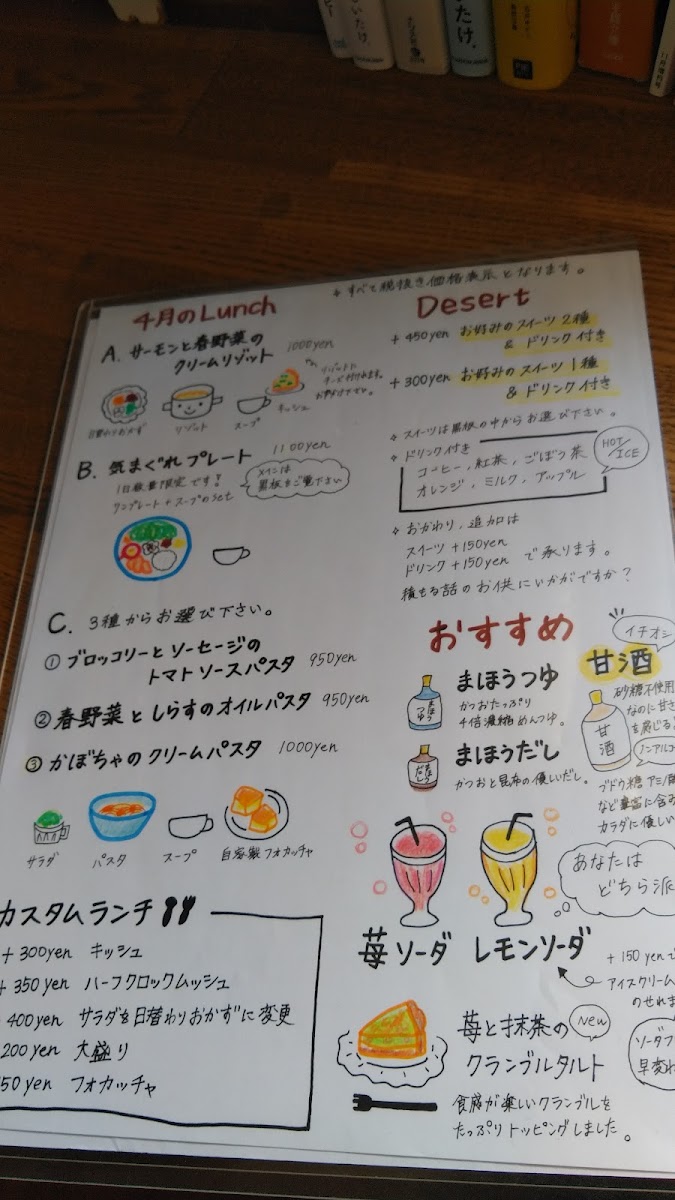 いたけ。
たけ。
4月のLunch
* すべて税抜き価格表示となります。
A. サーモンと春野菜の
クリームリゾット 1000yen
リゾットに
チーズ付けれます。
日替わりおかず
リゾット
スープ
キッシュ
B. 気まぐれプレート 1100yen
1日数量限定です!
ワンプレート+スープのset
メインは
黒板をご覧下さい
C. 3種からお選び下さい。
① ブロッコリーとソーセージの
トマトソースパスタ 950yen
② 春野菜としらすのオイルパスタ 950yen
③ かぼちゃのクリームパスタ 1000yen
サラダ
パスタ
スープ
自家製フォカッチャ
カスタムランチ
+ 300yen キッシュ
+ 350yen ハーフクロックムッシュ
400yen サラダを日替わりおかずに変更
200yen 大盛り
50yen フォカッチャ
Desert
+ 450yen お好みのスイーツ2種
& ドリンク付き
+ 300yen お好みのスイーツ1種
& ドリンク付き
* スイーツは黒板の中からお選び下さい。
* ドリンク付き
コーヒー, 紅茶, ごぼう茶
オレンジ, ミルク, アップル
HOT/ICE
* おかわり, 追加は
スイーツ +150yen
ドリンク +150yen で承ります。
積もる話のお供にいかがですか?
おすすめ
まほうつゆ
かつおたっぷり
4倍濃縮めんつゆ。
まほうつゆ
まほうだし
かつおと昆布の優しいだし。
まほうだし
イチオシ
甘酒
甘酒
砂糖不使用
なのに甘さ
を感じる
ノンアルコー
ブドウ糖 アミノ酸
など豊富に含み
カラダに優しい
あなたは
どちら派
苺ソーダ
レモンソーダ
+ 150yenで
アイスクリーム
のせれま
ソーダフ
早変わ
苺と抹茶の
クランブルタルト
New
食感が楽しいクランブルを
たっぷりトッピングしました。